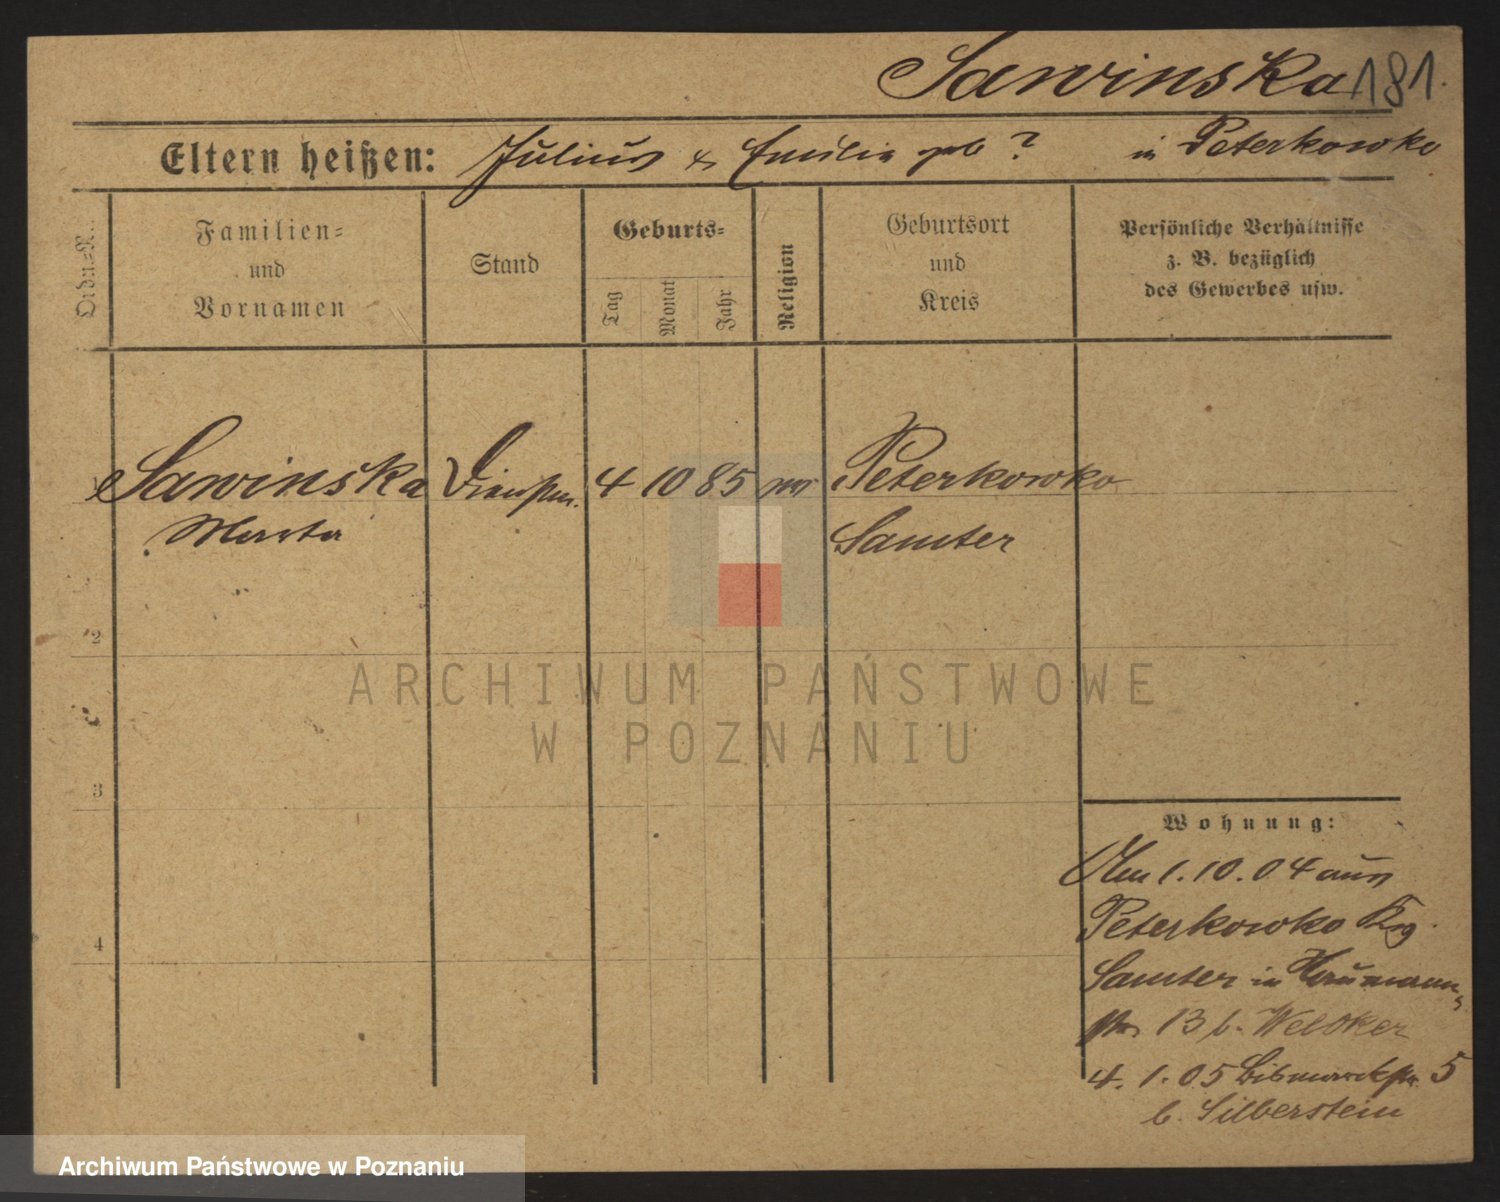 Sawinska 181.
Eltern heißen: Julius & Emilie geb ? in Peterkowko
Ordn.=N.
Familien=
und
Vornamen
Stand
Geburts=
Tag
Monat
Jahr
Religion
Geburtsort
und
Kreis
Persönliche Verhältnisse
z. B. bezüglich
des Gewerbes usw.
1 Sawinska Dienstm. 4 10 85 Peterkowko
Marta Samter
2
3
4
Wohnung:
Am 1.10.04 aus
Peterkowko
Samter in Naumann
str. 13 b. Welsker
4. 1. 05 Bismarckstr. 5
b. Silberstein
ARCHIWUM PAŃSTWOWE
W POZNANIU
Archiwum Państwowe w Poznaniu